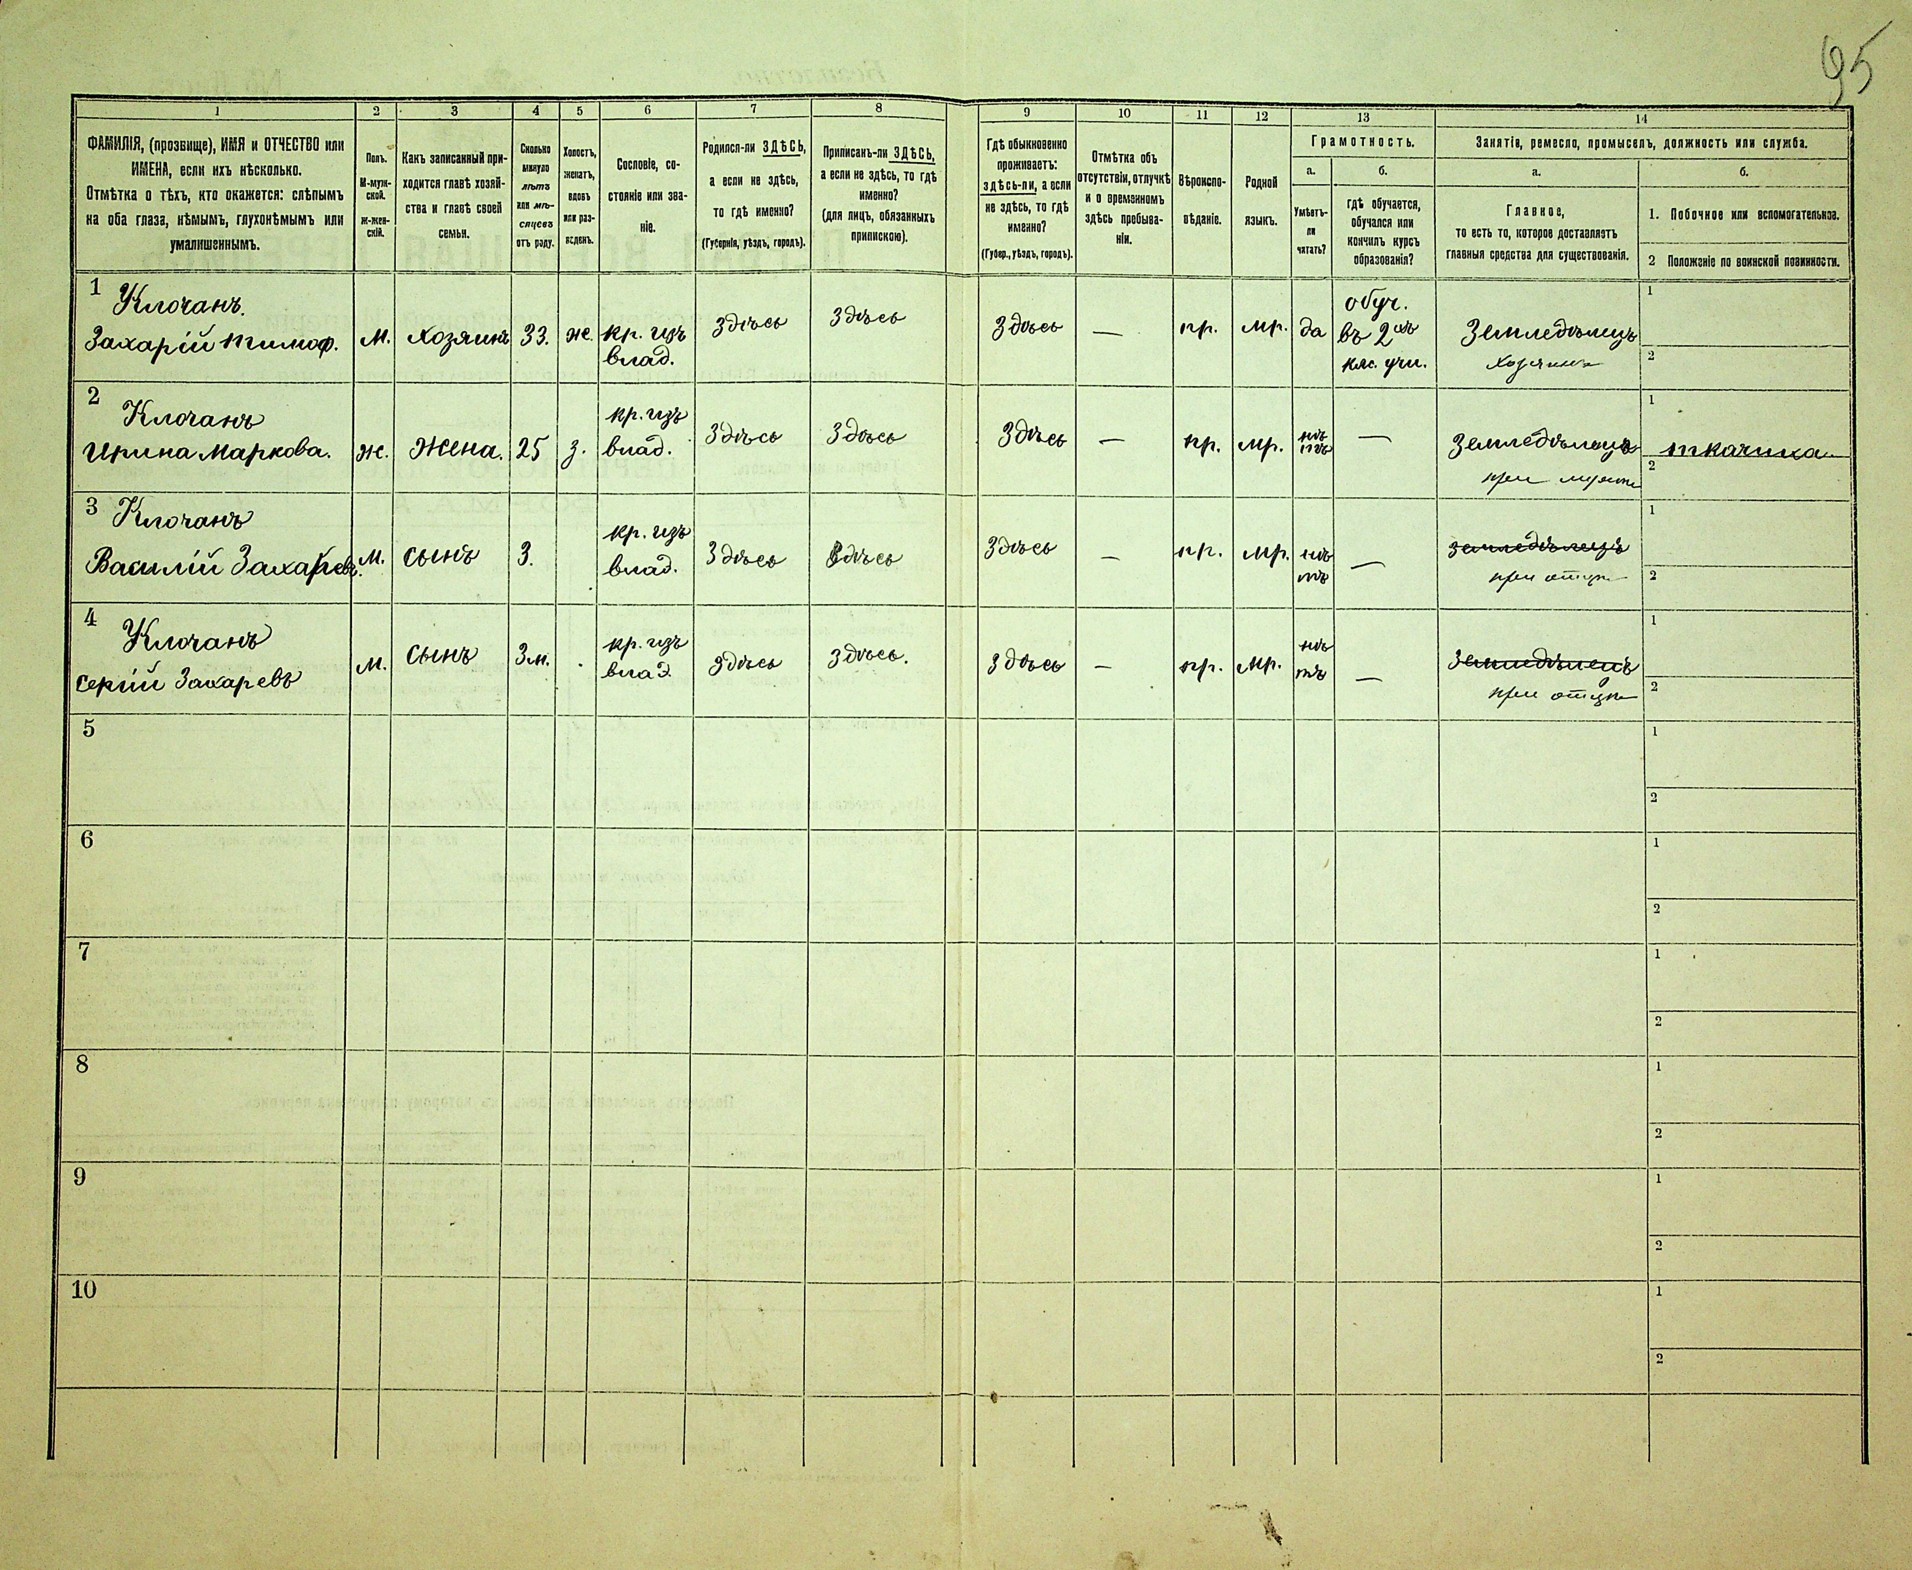 95
1 2 3 4 5 6 7 8 9 10 11 12 13 14
ФАМИЛІЯ, (прозвище), ИМЯ и ОТЧЕСТВО или
ИМЕНА, если ихъ нѣсколько.
Отмѣтка о тѣхъ, кто окажется: слѣпымъ
на оба глаза, нѣмымъ, глухонѣмымъ или
умалишеннымъ.
Полъ.
М-муж-
ской.
Ж-жен-
скій.
Какъ записанный при-
ходится главѣ хозяй-
ства и главѣ своей
семьи.
Сколько
минуло
лѣтъ
или мѣ-
сяцевъ
отъ роду.
Холостъ,
женатъ,
вдовъ
или раз-
веденъ.
Сословіе, со-
стояніе или зва-
ніе.
Родился-ли ЗДѢСЬ,
а если не здѣсь,
то гдѣ именно?
(Губернія, уѣздъ, городъ).
Приписанъ-ли ЗДѢСЬ,
а если не здѣсь, то гдѣ
именно?
(для лицъ, обязанныхъ
припискою).
Гдѣ обыкновенно
проживаетъ:
здѣсь-ли, а если
не здѣсь, то гдѣ
именно?
(Губер., уѣздъ, городъ).
Отмѣтка объ
отсутствіи, отлучкѣ
и о временномъ
здѣсь пребыва-
ніи.
Вѣроиспо-
вѣданіе.
Родной
языкъ.
Грамотность.
а.
Умѣетъ-
ли
читать?
б.
гдѣ обучается,
обучался или
кончилъ курсъ
образованія?
Занятіе, ремесло, промыселъ, должность или служба.
а.
Главное,
то есть то, которое доставляетъ
главныя средства для существованія.
б.
1. Побочное или вспомогательное.
2 Положеніе по воинской повинности.
1 Клочанъ.
Захарій Тимоф. м. хозяинъ 33. ж. кр. изъ влад. Здѣсь Здѣсь Здѣсь — пр. мр. да обуч.
въ 2хъ
клс. учи.
Земледѣлецъ
хозяинъ
1
2
2 Клочанъ
Ирина Маркова. ж. Жена. 25 з. кр. изъ влад. Здѣсь Здѣсь Здѣсь — пр. мр. нѣтъ — Земледѣлецъ
при мужѣ
1 ткачиха
2
3 Клочанъ
Василій Захарьевъ. м. сынъ 3. кр. изъ влад. Здѣсь Здѣсь Здѣсь — пр. мр. нѣтъ — земледѣлецъ
при отцѣ
1
2
4 Клочанъ
Сергій Захаревъ м. сынъ 3м. кр. изъ влад. здѣсь здѣсь. здѣсь — пр. мр. нѣтъ — Земледѣлецъ
при отцѣ
1
2
5
1
2
6
1
2
7
1
2
8
1
2
9
1
2
10
1
2